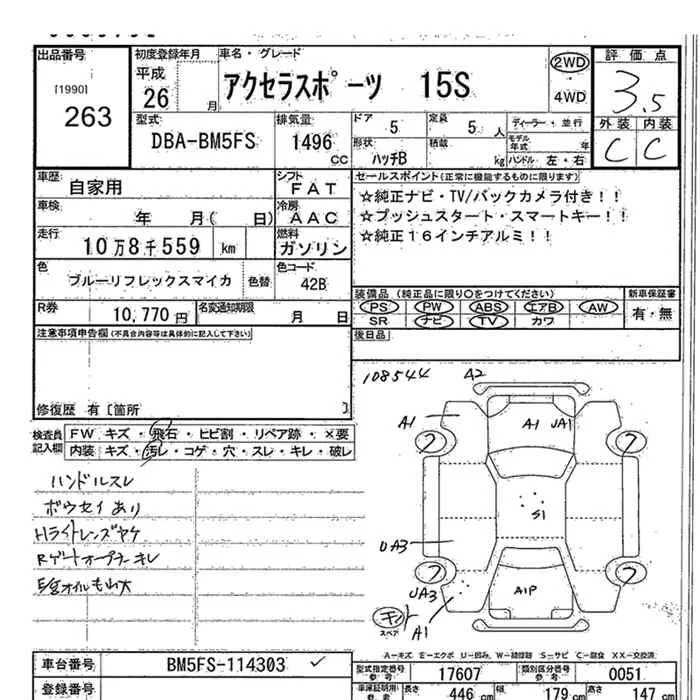 出品番号 初度登録年月 車名・グレード 2WD 評価点
[1990] 263 平成 26 月 アクセラスポーツ 15S 4WD 3.5
型式 排気量 ドア 5 定員 5 人 ディーラー・並行 外装 内装
DBA-BM5FS 1496 CC 形状 ハッチB 積載 kg モデル年式 年 ハンドル 左・右 C C
車歴 自家用 シフト FAT セールスポイント(正常に機能するものに限ります)
車検 年 月( 日) 冷房 AAC ☆純正ナビ・TV/バックカメラ付き!!
☆プッシュスタート・スマートキー!!
走行 10万8千559 km 燃料 ガソリン ☆純正16インチアルミ!!
色 ブルーリフレックスマイカ 色替 色コード 42B
装備品(純正品に限り〇をつけてください) 新車保証書
R券 10,770円 名変通知期限 月 日 PS PW ABS エアB AW 有・無
SR ナビ TV カワ
注意事項申告欄(不具合内容等は具体的に記入して下さい) 後日品
修復歴 有〔箇所 〕
108544 A2
検査員記入欄 FW キズ・飛石・ヒビ割・リペア跡・×要
内装 キズ・汚レ・コゲ・穴・スレ・キレ・破レ
A1 A1 UA1
ハンドルスレ
ボウセイあり
Hライトレンズヤケ
Rゲートオープナーキレ
S1
UA3
UA3 A1P
スペア A1
A-キズ E-エクボ U-凹み W-補修跡 S-サビ C-腐食 XX-交換済
車台番号 BM5FS-114303 ✓ 型式指定番号参考 17607 類別区分番号参考 0051
登録番号 車庫証明用参考 長さ 446 cm 幅 179 cm 高さ 147 cm